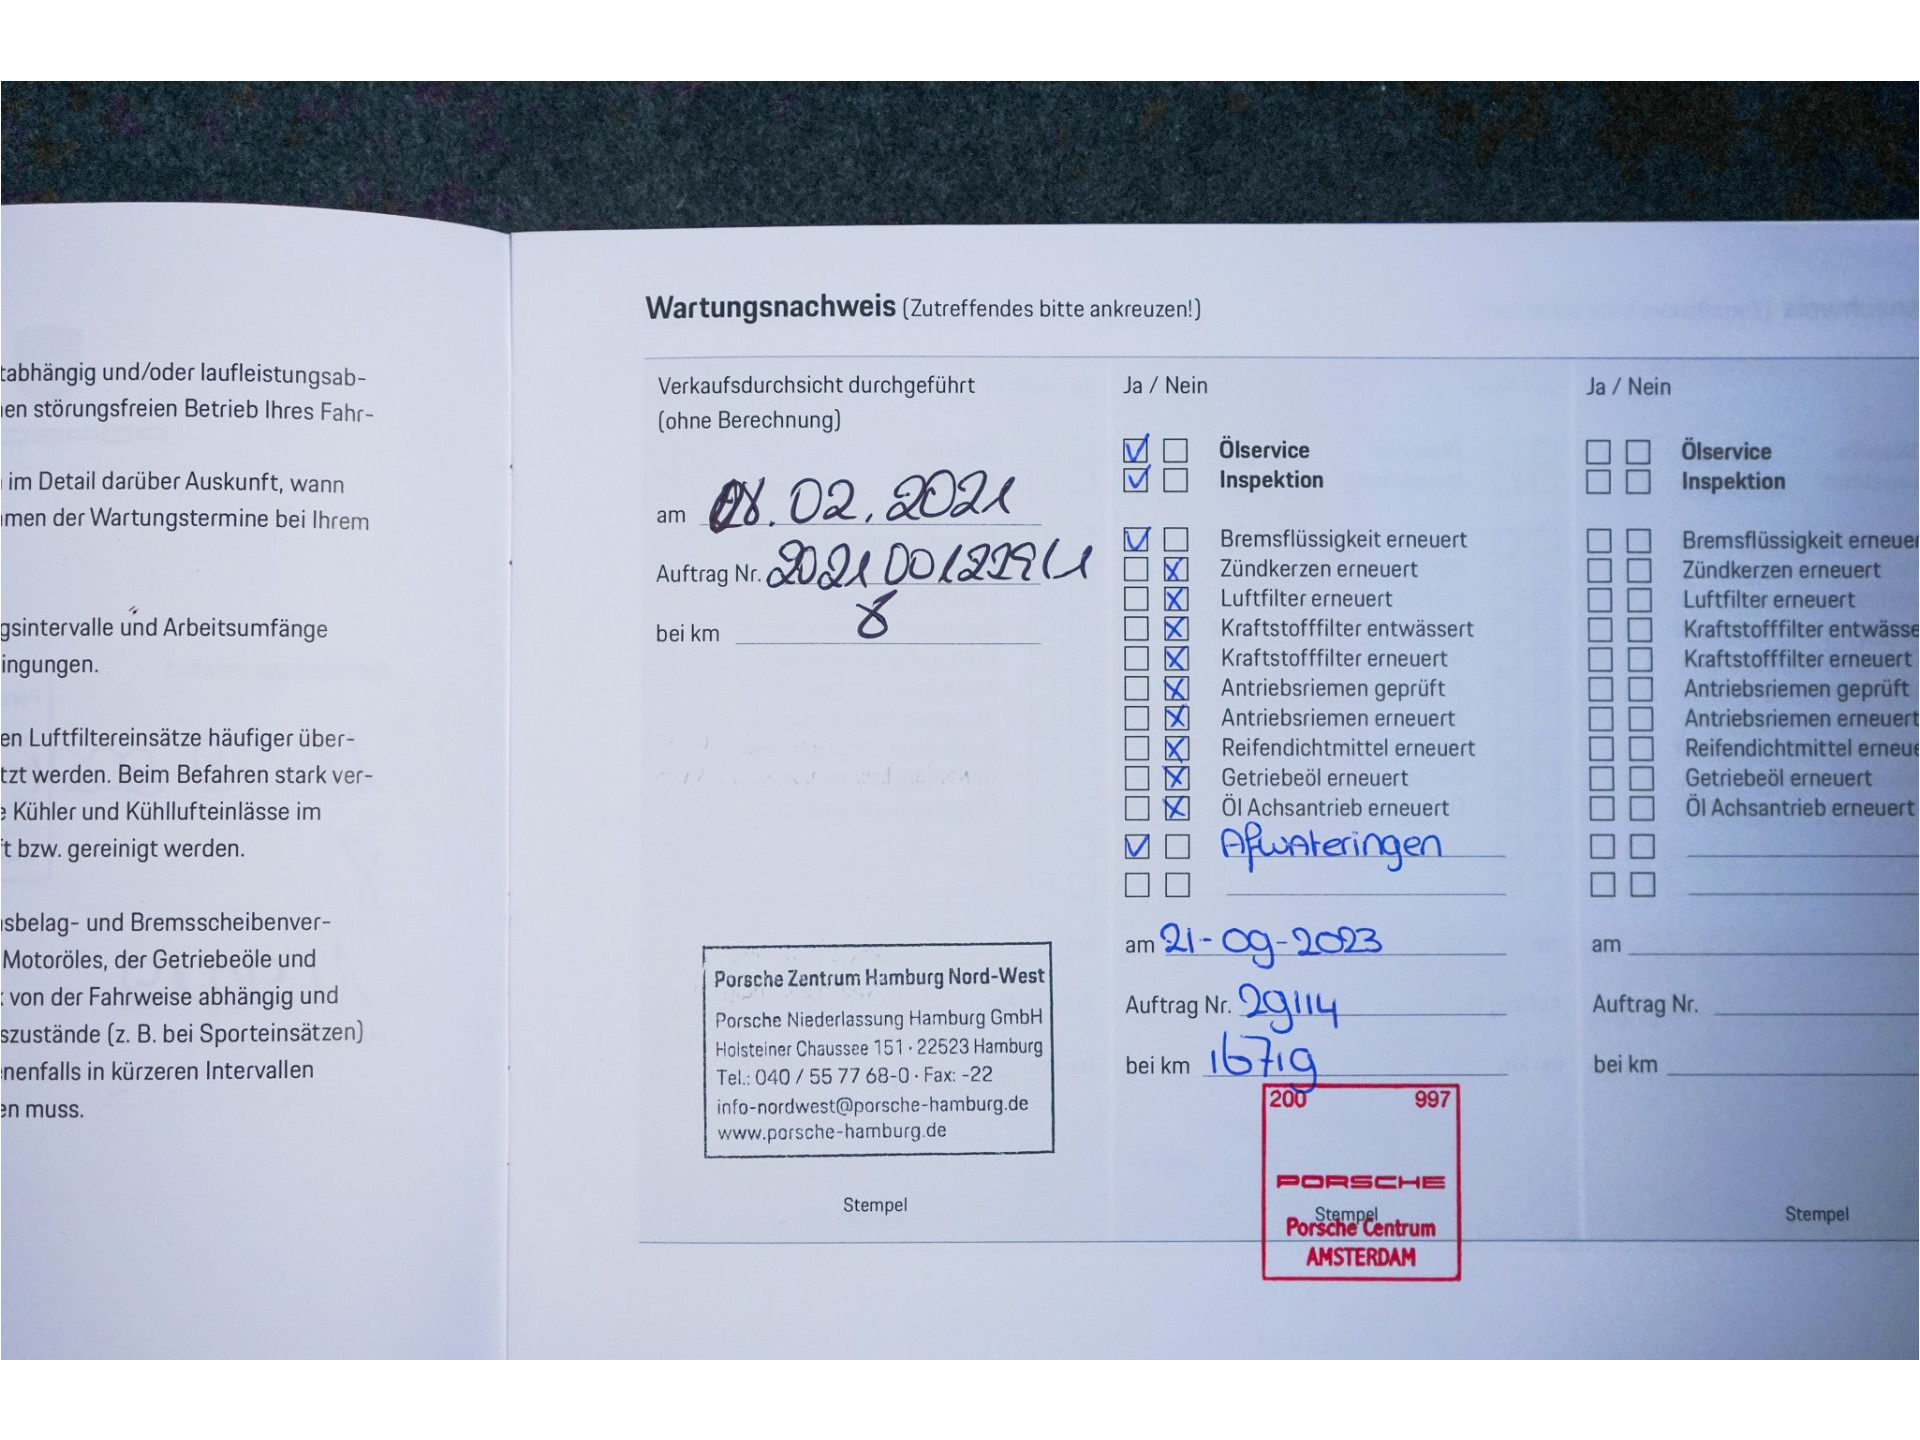 tabhängig und/oder laufleistungsab-
en störungsfreien Betrieb Ihres Fahr-
im Detail darüber Auskunft, wann
men der Wartungstermine bei Ihrem
gsintervalle und Arbeitsumfänge
ingungen.
en Luftfiltereinsätze häufiger über-
tzt werden. Beim Befahren stark ver-
e Kühler und Kühllufteinlässe im
t bzw. gereinigt werden.
sbelag- und Bremsscheibenver-
Motoröles, der Getriebeöle und
von der Fahrweise abhängig und
szustände (z. B. bei Sporteinsätzen)
enenfalls in kürzeren Intervallen
en muss.
Wartungsnachweis (Zutreffendes bitte ankreuzen!)
Verkaufsdurchsicht durchgeführt
(ohne Berechnung)
am 08.02.2021
Auftrag Nr.
bei km 8
Porsche Zentrum Hamburg Nord-West
Porsche Niederlassung Hamburg GmbH
Holsteiner Chaussee 151 · 22523 Hamburg
Tel.: 040 / 55 77 68-0 · Fax: -22
info-nordwest@porsche-hamburg.de
www.porsche-hamburg.de
Stempel
Ja / Nein
Ölservice
Inspektion
Bremsflüssigkeit erneuert
Zündkerzen erneuert
Luftfilter erneuert
Kraftstofffilter entwässert
Kraftstofffilter erneuert
Antriebsriemen geprüft
Antriebsriemen erneuert
Reifendichtmittel erneuert
Getriebeöl erneuert
Öl Achsantrieb erneuert
Afwateringen
am 21-09-2023
Auftrag Nr. 29114
bei km 16719
200 997
PORSCHE
Stempel
Porsche Centrum
AMSTERDAM
Ja / Nein
Ölservice
Inspektion
Bremsflüssigkeit erneuer
Zündkerzen erneuert
Luftfilter erneuert
Kraftstofffilter entwässe
Kraftstofffilter erneuert
Antriebsriemen geprüft
Antriebsriemen erneuert
Reifendichtmittel erneue
Getriebeöl erneuert
Öl Achsantrieb erneuert
am
Auftrag Nr.
bei km
Stempel